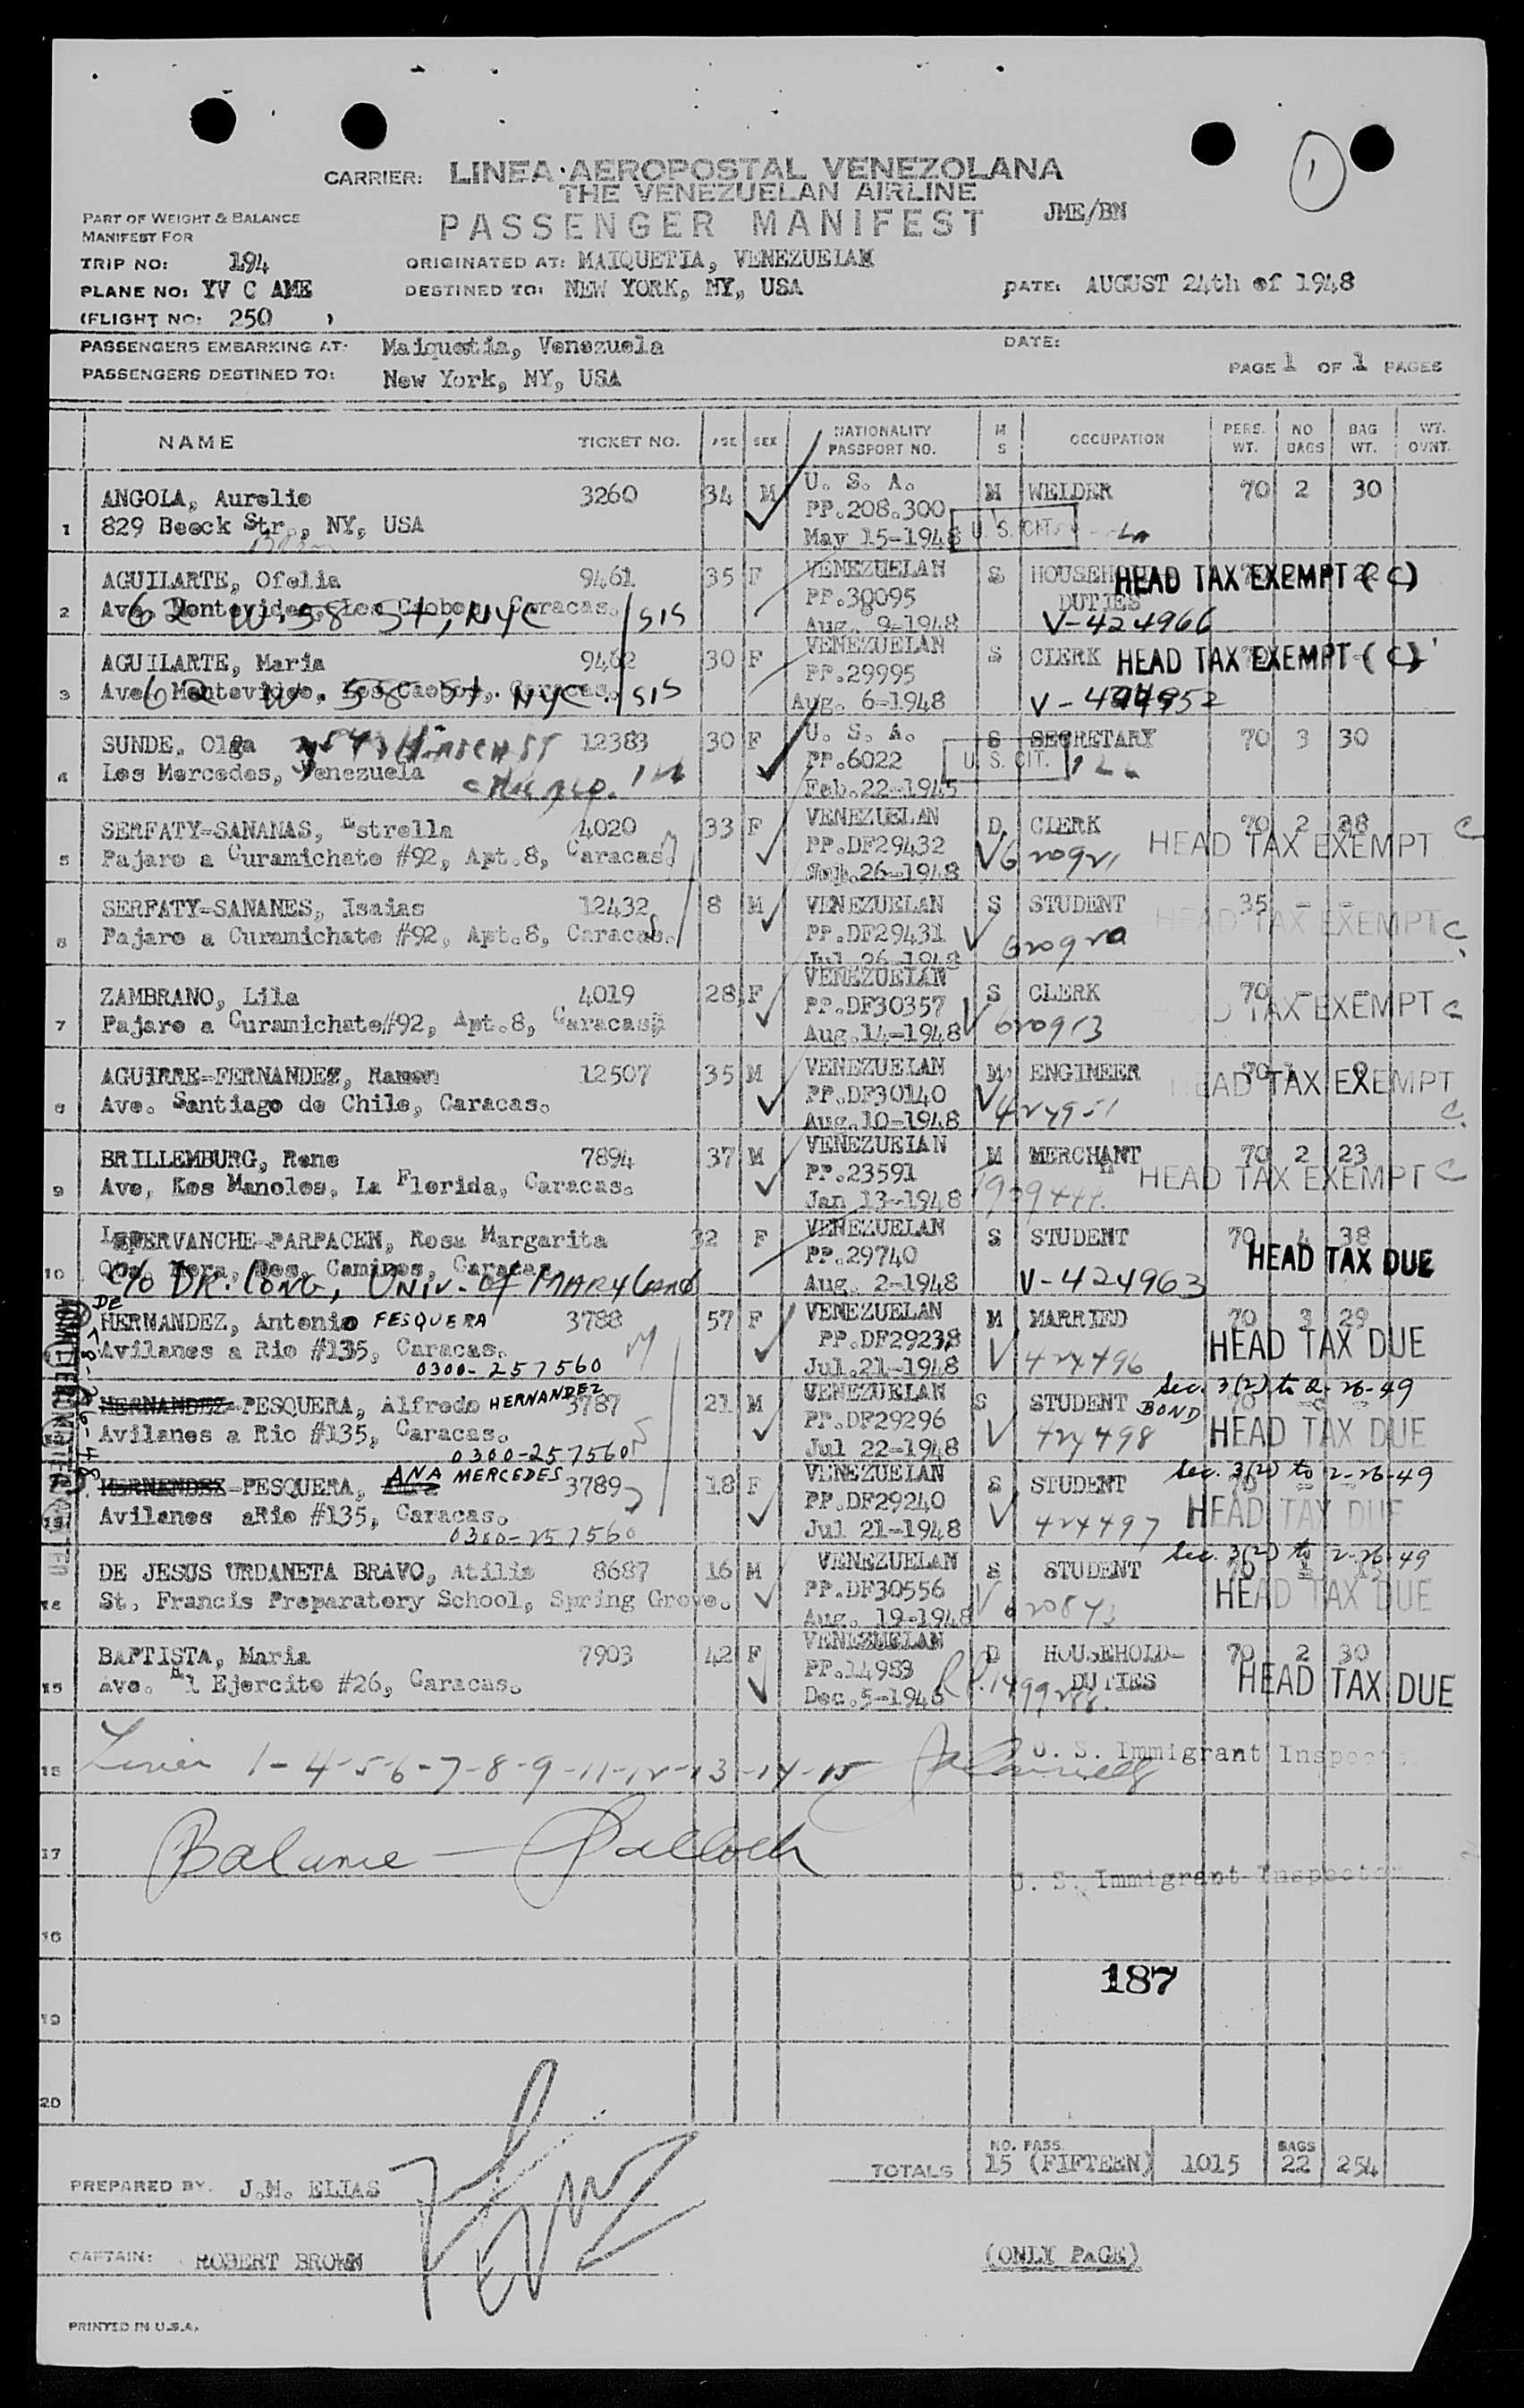 1
CARRIER: LINEA AEROPOSTAL VENEZOLANA
THE VENEZUELAN AIRLINE
PASSENGER MANIFEST JME/BN
PART OF WEIGHT & BALANCE
MANIFEST FOR
TRIP NO: 194 ORIGINATED AT: MAIQUETIA, VENEZUELAN
PLANE NO: YV C AME DESTINED TO: NEW YORK, NY, USA DATE: AUGUST 24th of 1948
(FLIGHT NO: 250 )
PASSENGERS EMBARKING AT: Maiquetia, Venezuela DATE:
PASSENGERS DESTINED TO: New York, NY, USA PAGE 1 OF 1 PAGES
NAME TICKET NO. AGE SEX NATIONALITY PASSPORT NO. M S OCCUPATION PERS. WT. NO BAGS BAG WT. WT. OVNT.
ANGOLA, Aurelio 3260 34 M U. S. A. M WELDER 70 2 30
1 829 Beeck Str., NY, USA PP.208.300
May 15-1948 U. S. CIT.
AGUILARTE, Ofelia 9461 35 F VENEZUELAN S HOUSEHOLD HEAD TAX EXEMPT (C)
2 Ave. Montevideo, Los Caobos, Caracas. PP.30095 DUTIES
62 W. 58 St, NYC / sis Aug. 9-1948 V-424966
AGUILARTE, Maria 9462 30 F VENEZUELAN S CLERK HEAD TAX EXEMPT (C)
3 Ave. Montevideo, Los Caobos, Caracas. PP.29995
62 W. 58 St. NYC. / sis Aug. 6-1948
SUNDE, Olga 12383 30 F U. S. A. S SECRETARY 70 3 30
4 Les Mercedes, Venezuela PP.6022 U. S. CIT.
Feb.22-1945
SERFATY-SANANAS, Estrella 4020 33 F VENEZUELAN D CLERK 70 2 28
5 Pajaro a Curamichate #92, Apt.8, Caracas. PP.DF29432 V620921 HEAD TAX EXEMPT C
26-1948
SERFATY-SANANES, Isaias 12432 8 M VENEZUELAN S STUDENT 35 - -
6 Pajaro a Curamichate #92, Apt.8, Caracas. PP.DF29431 V 620920 HEAD TAX EXEMPT C
Jul 26-1948
ZAMBRANO, Lila 4019 28 F VENEZUELAN S CLERK 70 - -
7 Pajaro a Curamichate#92, Apt.8, Caracas PP.DF30357 V 620913 TAX EXEMPT C
Aug.14-1948
AGUIRRE-FERNANDEZ, Ramon 12507 35 M VENEZUELAN M ENGINEER 70
8 Ave. Santiago de Chile, Caracas. PP.DF30140 V 424951 HEAD TAX EXEMPT C
Aug.10-1948
BRILLEMBURG, Rene 7894 37 M VENEZUELAN M MERCHANT 70 2 23
9 Ave, Kos Manolos, La Florida, Caracas. PP.23591 HEAD TAX EXEMPT C
Jan 13-1948
LSPERVANCHE-PARPACEN, Rosa Margarita 32 F VENEZUELAN S STUDENT 70 4 38
10 Caminos, Caracas PP.29740 HEAD TAX DUE
c/o DR. LONG, UNIV. of MARYLAND Aug. 2-1948 V-424963
DE HERNANDEZ, Antonio PESQUERA 3788 57 F VENEZUELAN M MARRIED 70 3 29
Avilanes a Rio #135, Caracas. PP.DF29238 V 424496 HEAD TAX DUE
0300-257560 Jul.21-1948
HERNANDEZ-PESQUERA, Alfredo HERNANDEZ 3787 21 M VENEZUELAN S STUDENT BOND Sec. 3(2) to 2-26-49
Avilanes a Rio #135, Caracas. PP.DF29296 V 424498 HEAD TAX DUE
0300-257560 Jul 22-1948
HERNANDEZ-PESQUERA, ANA MERCEDES 3789 18 F VENEZUELAN S STUDENT Sec. 3(2) to 2-26-49
Avilanes aRio #135, Caracas. PP.DF29240 V 424497 HEAD TAX DUE
0300-257560 Jul 21-1948
DE JESUS URDANETA BRAVO, Atilio 8687 16 M VENEZUELAN S STUDENT Sec. 3(2) to 2-26-49
St. Francis Preparatory School, Spring Grove. PP.DF30556 HEAD TAX DUE
Aug. 19-1948
BAPTISTA, Maria 7903 42 F VENEZUELAN D HOUSEHOLD- 70 2 30
15 Ave. El Ejercito #26, Caracas. PP.14983 DUTIES HEAD TAX DUE
Dec.5-1946
U. S. Immigrant Inspector
Lines 1-4-5-6-7-8-9-11-12-13-14-15
17 Balance
U. S. Immigrant Inspector
187
19
20
TOTALS NO. PASS. 15 (FIFTEEN) 1015 BAGS 22 254
PREPARED BY. J.M. ELIAS
CAPTAIN: ROBERT BROWN (ONLY PAGE)
PRINTED IN U.S.A.